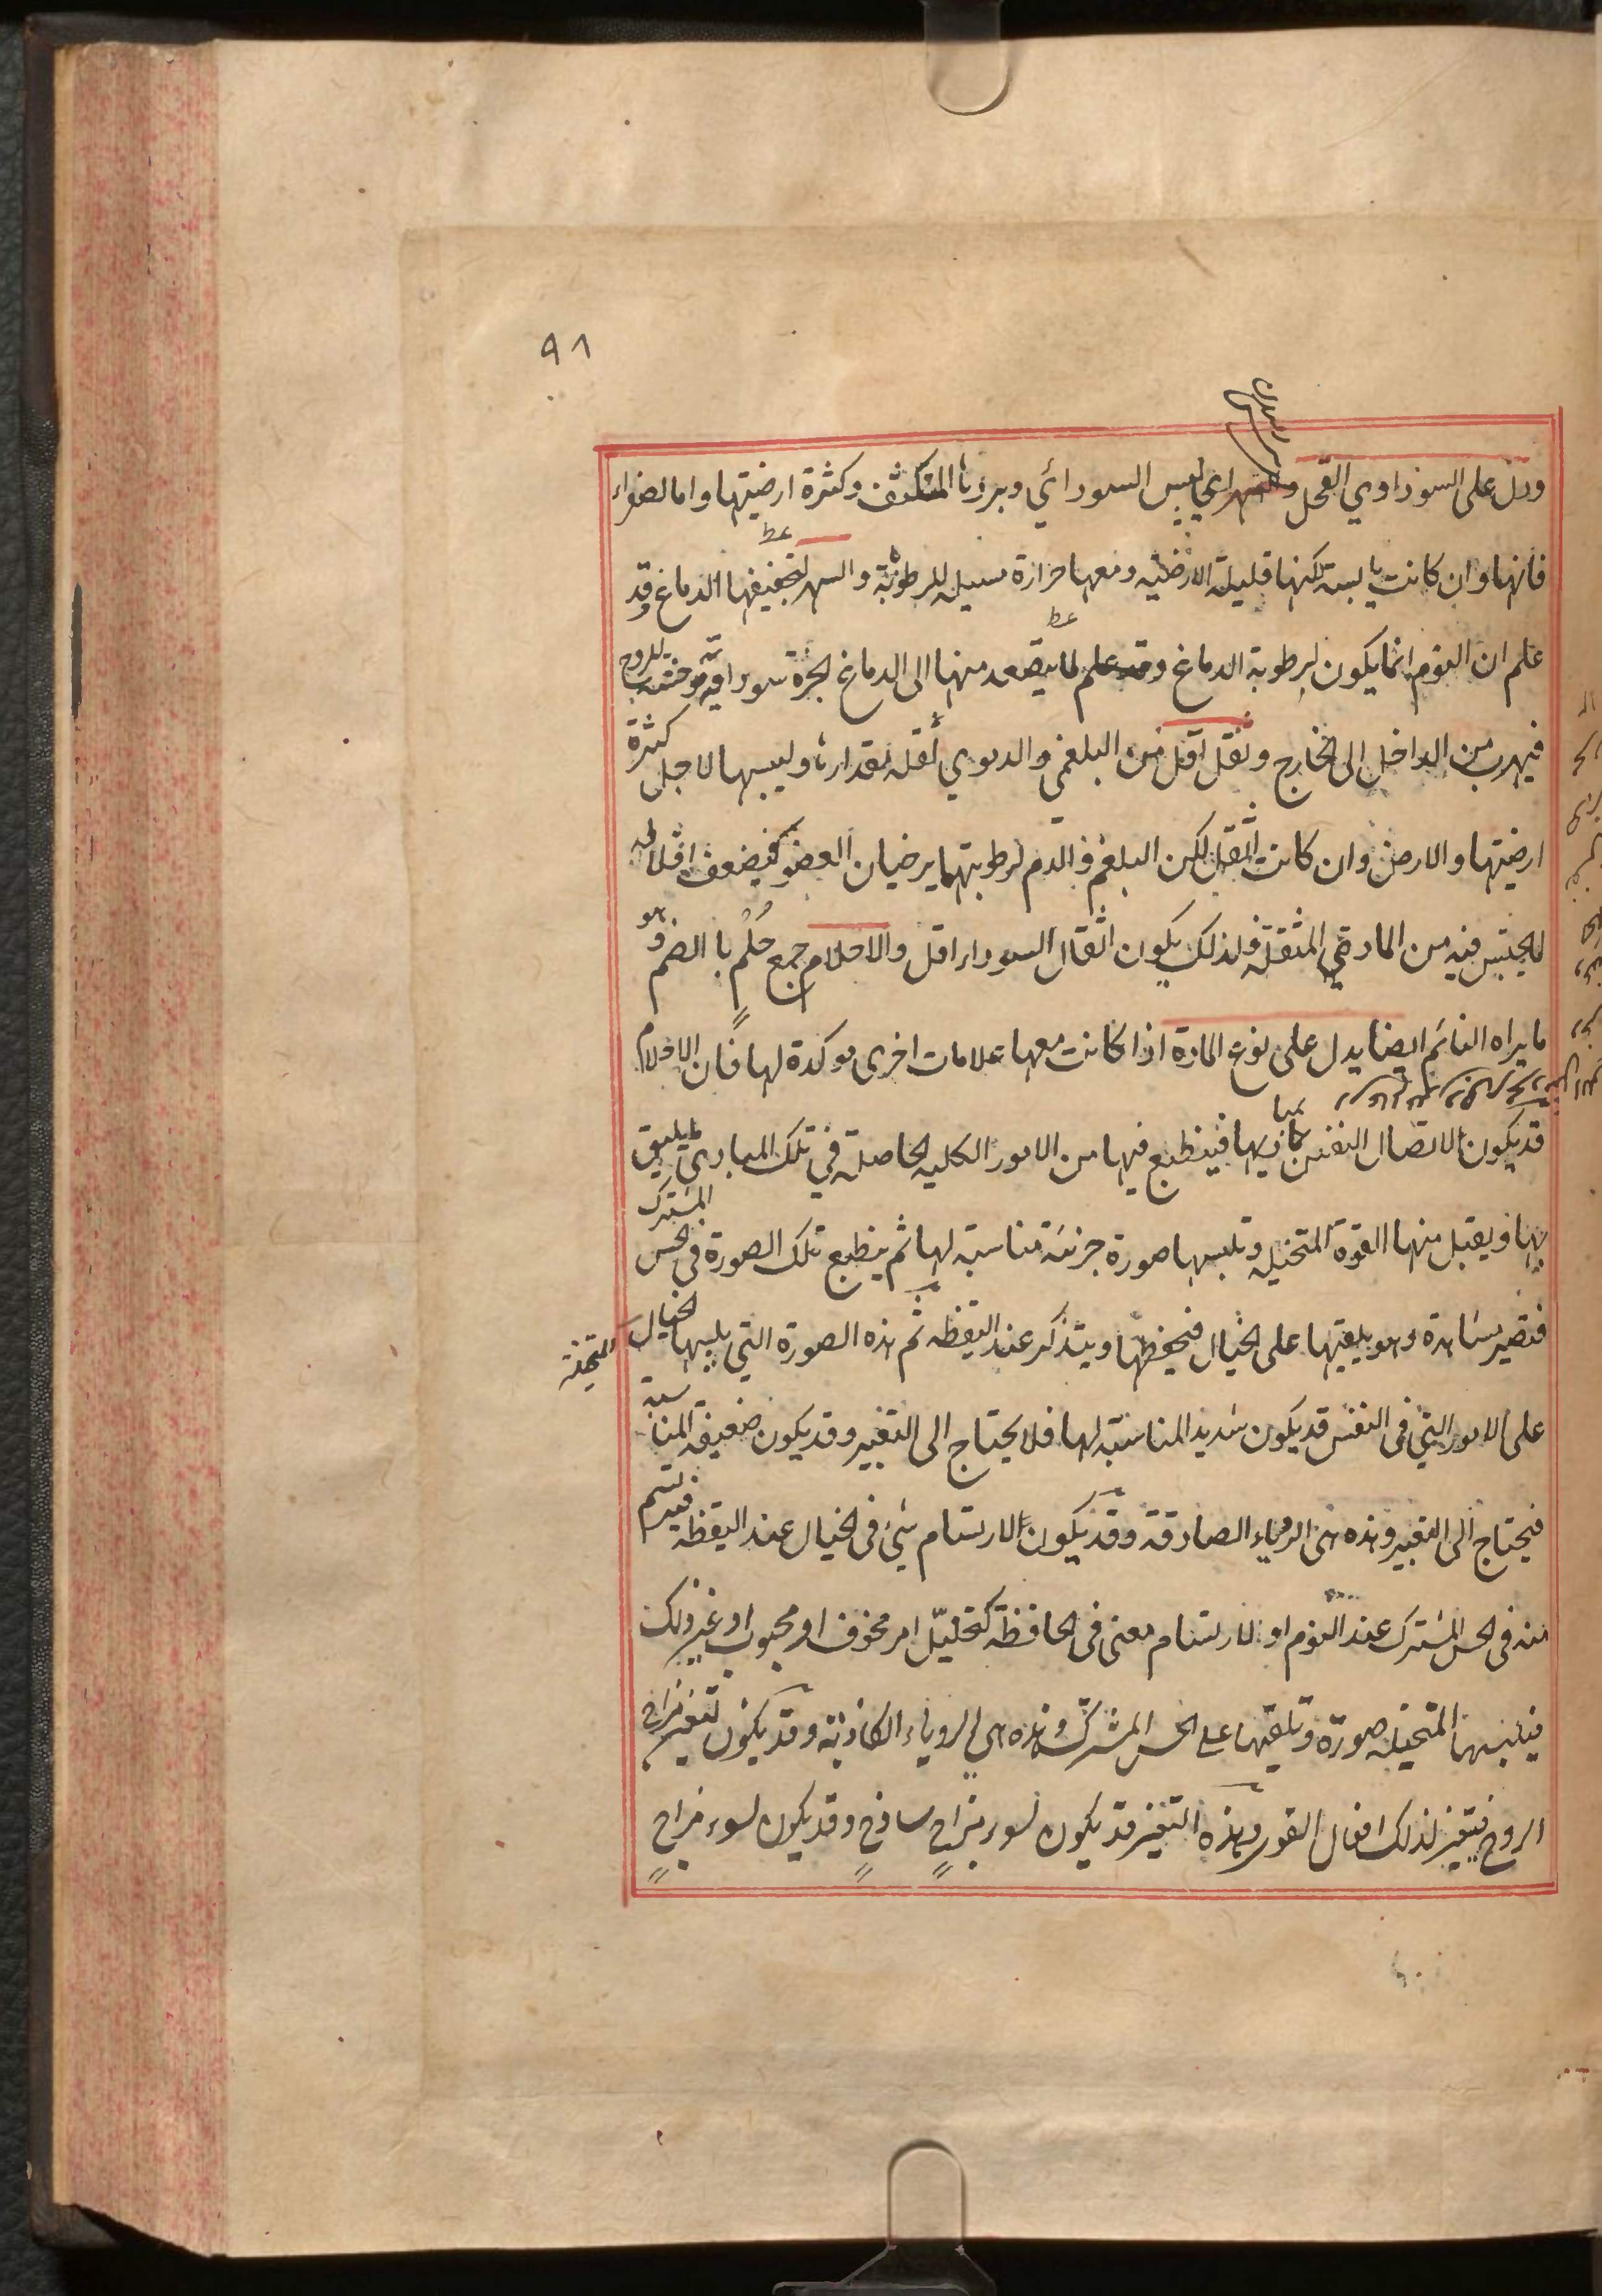 ٩١
ودل على السوداوي القحل اي ليبس السوداي وبردها المتكثف وكثرة ارضيتها واما الصفراء
فانها وان كانت يابسة لكنها قليلة الارضية ومعها حرارة مسيلة للرطوبة والسهر لتجفيفها الدماغ وقد
علم ان النوم انما يكون لرطوبة الدماغ ولما يتصعد منها الى الدماغ ابخرة سوداوية موحشة للروح
فيهرب من الداخل الى الخارج وثقل اقل من البلغمي والدموي لقلة مقدارها وليبسها لاجل كثرة
ارضيتها والارض وان كانت اثقل لكن البلغم والدم لرطوبتهما يرخيان العضو فيضعف اقلاله
لما يحتبس فيه من المادة المثقلة فلذلك يكون اثقال السوداء اقل والاحلام جمع حُلْم بالضم وهو
ما يراه النائم ايضا يدل على نوع المادة اذا كانت معها علامات اخرى موكدة لها فان الاحلام
قد يكون لاتصال النفس بمباديها فينطبع فيها من الامور الكلية الحاصلة في تلك المبادي ما يليق
بها ويقبل منها القوة المتخيلة وتلبسها صورة جزئية مناسبة لها ثم ينطبع تلك الصورة في الحس المشترك
فتصير مشاهدة وهو يلقيها على الخيال فيحفظها ويتذكر عند اليقظة ثم هذه الصورة التي يلبسها الخيال المتخيلة
على الامور التي في النفس قد يكون شديد المناسبة لها فلا يحتاج الى التعبير وقد يكون ضعيفة المناسبة
فيحتاج الى التعبير وهذه هى الروياء الصادقة وقد يكون لارتسام شئ فى الخيال عند اليقظة فيرتسم
منه فى الحس المشترك عند النوم او لارتسام معنى فى الحافظة كتخيل امر مخوف او محبوب او غير ذلك
فيلبسها المتخيلة صورة وتلقيها على الحس المشترك وهذه هي الروياء الكاذبة وقد يكون لتغير مزاج
الروح فيتغير لذلك افعال القوى وهذه التغير قد يكون لسوء مزاج ساذج وقد يكون لسوء مزاج